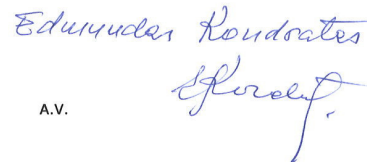 Edmundas Kondratas
A.V.